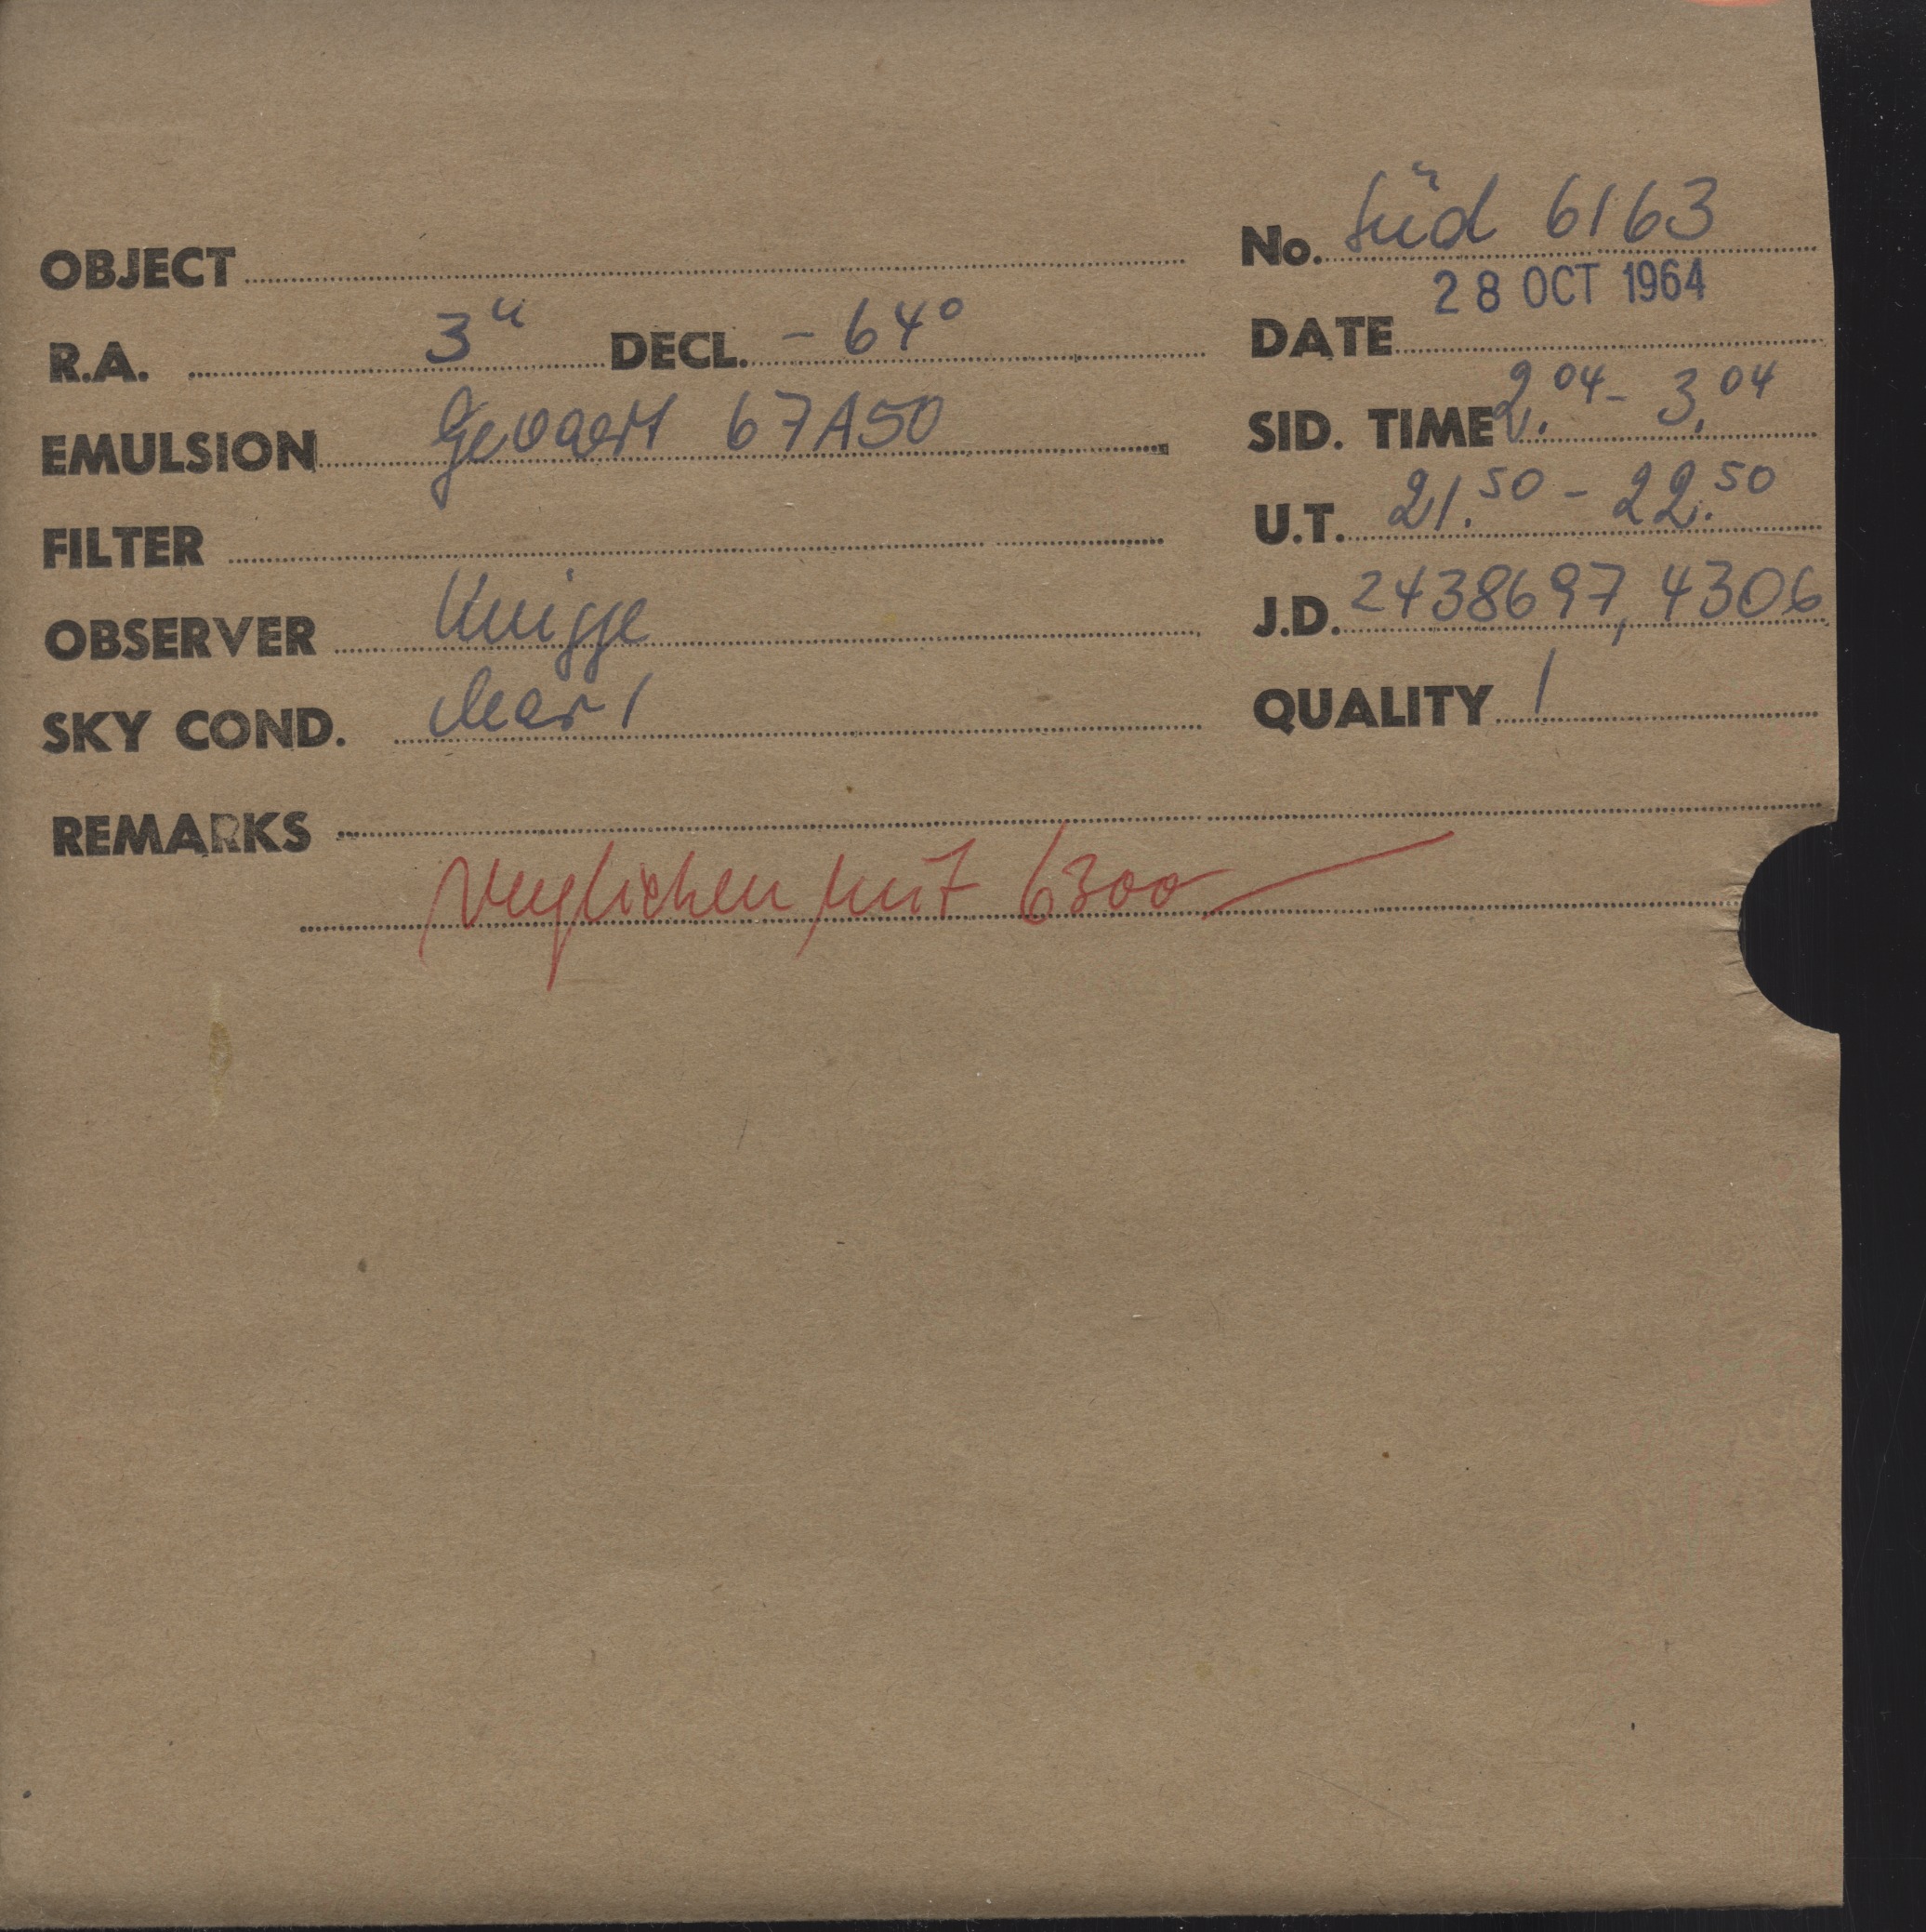 No. Süd 6163
OBJECT
28 OCT 1964
R.A. 3ʰ DECL. - 64°
DATE
EMULSION Gevaert 67A50
SID. TIME 2.04 - 3.04
FILTER
U.T. 21.50 - 22.50
OBSERVER Knigge
J.D. 2438697,4306
SKY COND. clear 1
QUALITY 1
REMARKS
verglichen mit 6300